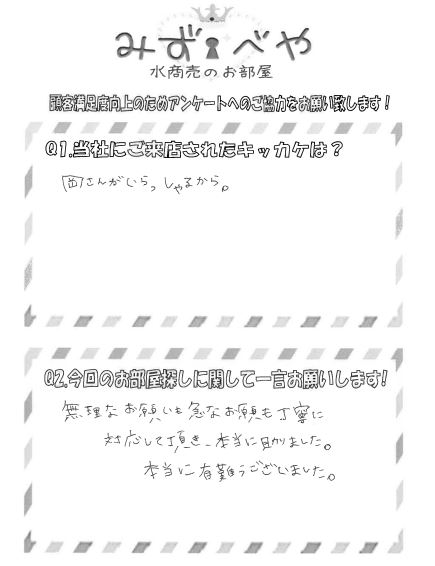 みずべや
水商売のお部屋
顧客満足度向上のためアンケートへのご協力をお願い致します！
Q1.当社にご来店されたキッカケは？
岡さんがいらっしゃるから。
Q2.今回のお部屋探しに関して一言お願いします!
無理なお願いも急なお願いも丁寧に
対応して頂き、本当に助かりました。
本当に有難うございました。